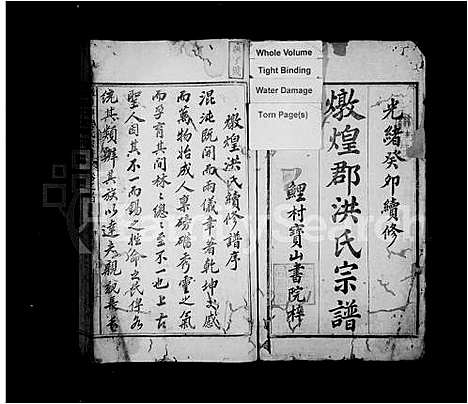 Whole Volume
Tight Binding
Water Damage
Torn Page(s)
光緒癸卯續修
燉煌郡洪氏宗譜
鯉村寶山書院梓
燉煌洪氏續修譜序
混沌既開而兩儀車著乾坤感
而萬物始成人稟磅礴秀靈之氣
而孚育其間林林總總之至不一也上古
聖人因其不一而錫之姓俾民得各
統其類辨其族以達夫親親長長